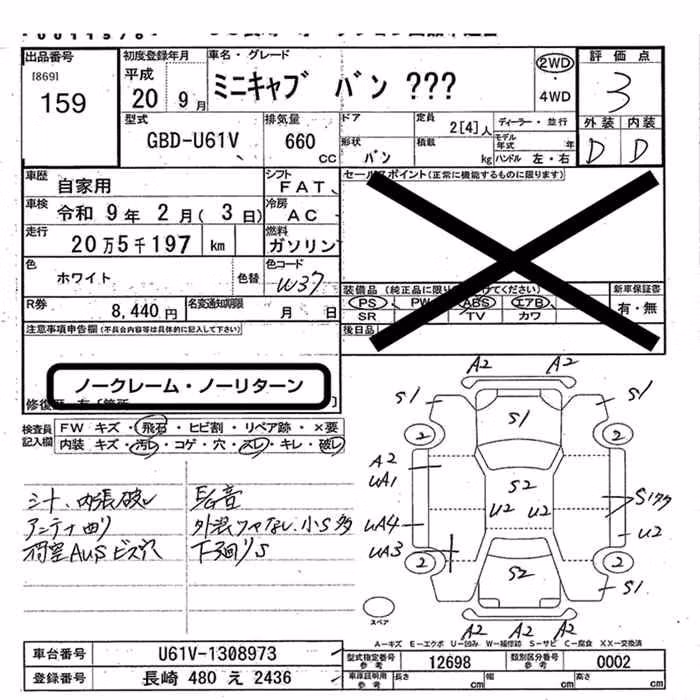 出品番号
[869]
159
初度登録年月
平成
20 9月
車名・グレード
ミニキャブ バン ???
2WD
・
4WD
評価点
3
外装 内装
D D
型式
GBD-U61V
排気量
660
CC
ドア
形状
バン
定員
2[4]人
積載
kg
ディーラー・並行
モデル年式 年
ハンドル 左・右
車歴
自家用
シフト
FAT
車検
令和 9年 2月( 3日)
冷房
AC
走行
20万5千197 km
燃料
ガソリン
色
ホワイト
色替
色コード
W37
R券
8,440円
名変通知期限
月 日
セールスポイント(正常に機能するものに限ります)
装備品
PS PW ABS エアB
SR TV カワ
後日品
新車保証書
有・無
注意事項申告欄(不具合内容等は具体的に記入して下さい)
ノークレーム・ノーリターン
検査員記入欄
FW キズ・飛石・ヒビ割・リペア跡・×要
内装 キズ・汚レ・コゲ・穴・スレ・キレ・破レ
シート、内張破レ
アンテナ曲リ
荷室AUSビス穴
下廻りS
A2 A2
S1 S1 S1
2 2
A2
UA1
S2
U2 U2
UA4
UA3
U2
2 2
S2
S1
A2 A2 A2
スペア
A-キズ E-エクボ U-凹み W-補修跡 S-サビ C-腐食 XX-交換済
車台番号
U61V-1308973
登録番号
長崎 480 え 2436
型式指定番号
参考
12698
類別区分番号
参考
0002
車庫証明用
参考
長さ cm
幅 cm
高さ cm